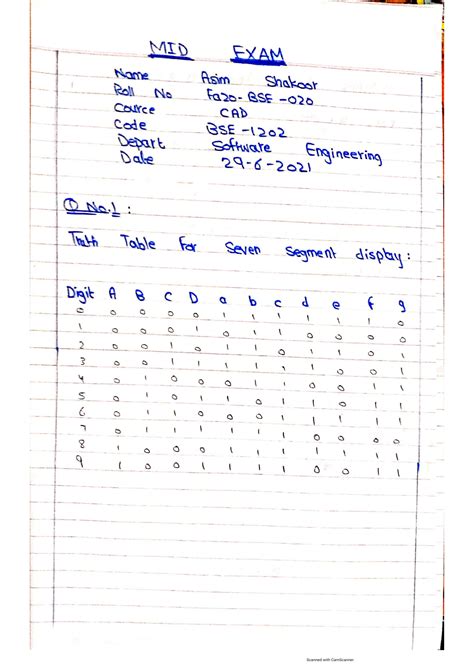 MID EXAM
Name Asim Shakoor
Roll No Fa20-BSE-020
Cource CAD
Code BSE-1202
Depart Software Engineering
Date 29-6-2021
Q No.1 :
Truth Table for Seven Segment display :
Digit A B C D a b c d e f g
0 0 0 0 0 1 1 1 1 1 1 0
1 0 0 0 1 0 1 1 0 0 0 0
2 0 0 1 0 1 1 0 1 1 0 1
3 0 0 1 1 1 1 1 1 0 0 1
4 0 1 0 0 0 1 1 0 0 1 1
5 0 1 0 1 1 0 1 1 0 1 1
6 0 1 1 0 0 0 1 1 1 1 1
7 0 1 1 1 1 1 1 0 0 0 0
8 1 0 0 0 1 1 1 1 1 1 1
9 1 0 0 1 1 1 1 0 0 1 1
Scanned with CamScanner